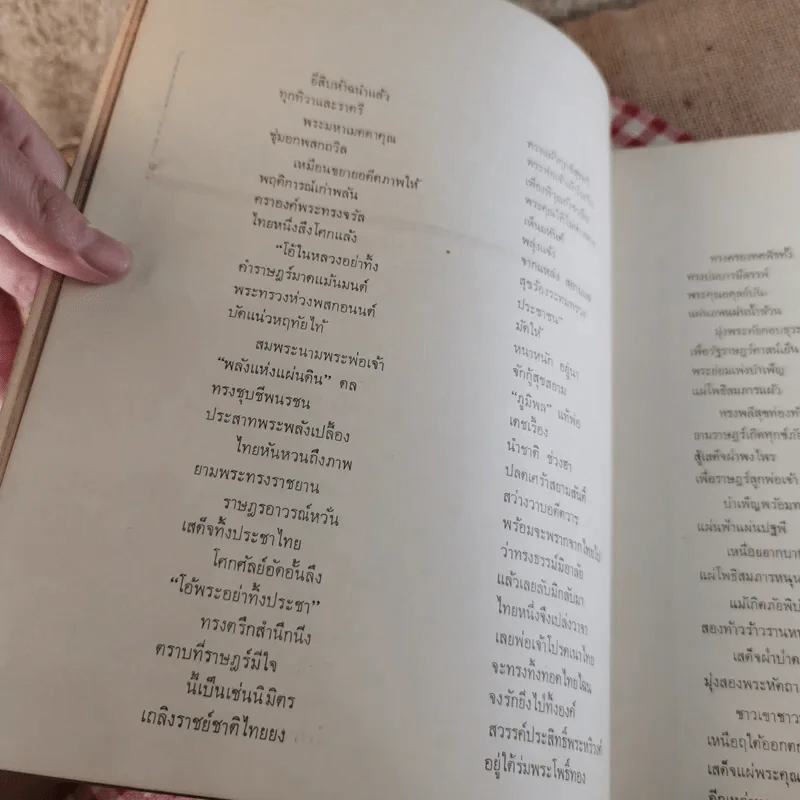 อีสิบห้าฉนำแล้ว
ทุกทิวาและราตรี
พระมหาเมตตาคุณ
ชุ่มอกพสกถวิล
เหมือนขยายอดีตภาพให้
พฤติการณ์เก่าพลัน
คราองค์พระทรงจรัล
ไทยหนึ่งสึงโศกแล้ง
“โอ้ในหลวงอย่าทิ้ง
คำราษฎร์มาดแม้นมนต์
พระทรวงห่วงพสกอนนต์
บัดแน่วหฤทัยไท้
สมพระนามพระพ่อเจ้า
“พลังแห่งแผ่นดิน” ดล
ทรงชุบชีพนรชน
ประสาทพระพลังเปลื้อง
ไทยหันหวนถึงภาพ
ยามพระทรงราชยาน
ราษฎรอาวรณ์หวั่น
เสด็จทิ้งประชาไทย
โศกศัลย์อัดอั้นลึง
“โอ้พระอย่าทิ้งประชา”
ทรงตรึกสำนึกนึง
ตราบที่ราษฎร์มีใจ
นี้เป็นเช่นนิมิตร
เถลิงราชย์ชาติไทยยง
เห็นมหันต์
พลุ่งแจ้ง
จากแหล่ง
ประชาชน”
มัดให้
หนาหนัก อยู่นา
จักกู้สุขสยาม
“ภูมิพล” แท้พ่อ
เดชเรื่อง
นำชาติ ช่วงฮา
ปลดเศร้าสยามสันติ์
สว่างวาบอดีตวาร
พร้อมจะพรากจากไทยไป
ว่าทรงธรรม์มิอาลัย
แล้วเลยลับมิกลับมา
ไทยหนึ่งจึงเปล่งวาจา
เลยพ่อเจ้าโปรดเนาไทย
จะทรงทิ้งทอดไทยไฉน
จงรักยิ่งไปทั้งองค์
สวรรค์ประสิทธิ์พระหริวงศ์
อยู่ใต้ร่มพระโพธิ์ทอง
ทรงครองทศพิธทั่ว
ทรงบ่มบารมีสรรพ์
แผ่นภพแผ่นน้ำท้วน
เพื่อรัฐราษฎร์ศาสน์เย็น
พระย่อมเพ่งบำเพ็ญ
แผ่โพธิสมภารแผ้ว
ทรงพลีสุขท่อง
ยามราษฎร์เกิดทุกข์ภัย
สู้เสด็จฝ่าพงไพร
เพื่อราษฎร์ลูกพ่อเจ้า
บำเพ็ญพร้อม
แผ่นฟ้าแผ่นปฐพี
เหนื่อยยาก
แผ่โพธิสมภารหนุน
แม้เกิดภัย
สองท้าวร้าวราน
เสด็จฝ่า
มุ่งสองพระหัตถา
ชาวเขาชาว
เหนือฤใต้ออกตก
เสด็จแผ่พระคุณ